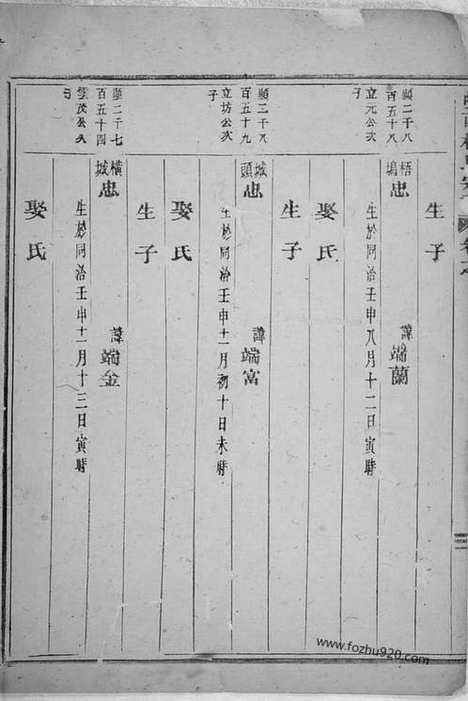 生子
顯二千八
百五十八
立元公次
子
梧塢忠
諱端蘭
生於同治壬申八月十二日寅時
娶氏
生子
顯二千八
百五十九
立坊公次
子
城頭忠
諱端富
生於同治壬申十二月初十日未時
娶氏
生子
顯二千七
百五十四
公次
子
橫城忠
諱端金
生於同治壬申十二月十三日寅時
娶氏
www.fozhu920.com